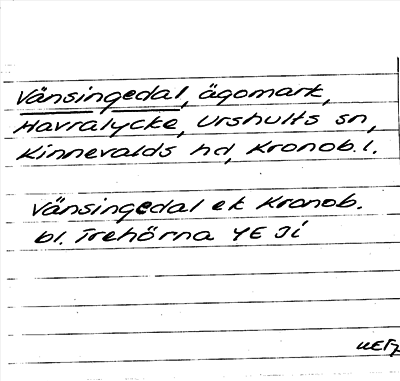 Vänsingedal, ägomark,
Havralycke, Urshults sn,
Kinnevalds hd, Kronob. l.
Vänsingedal ek Kronob.
bl. Trehörna 4E Ji